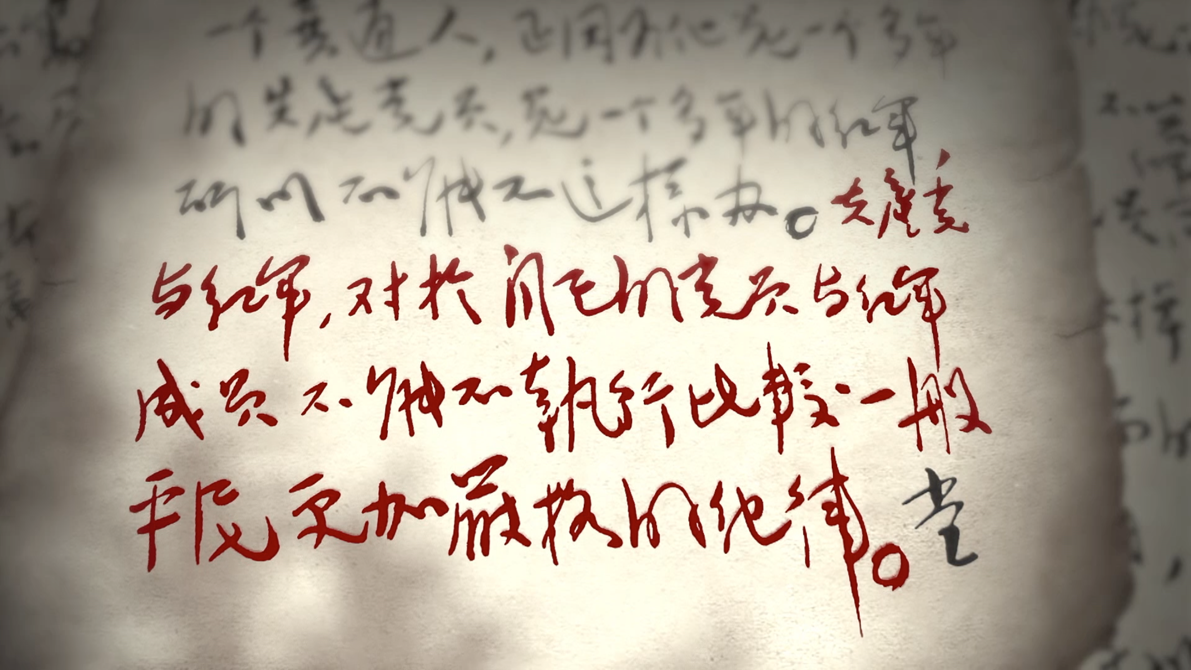 一个普通人,正因为他是一个多年
的共产党员,是一个多年的红军
所以不能不这样办。共產党
与红军,对於自己的党员与红军
成员不能不執行比較一般
平民更加嚴格的纪律。当